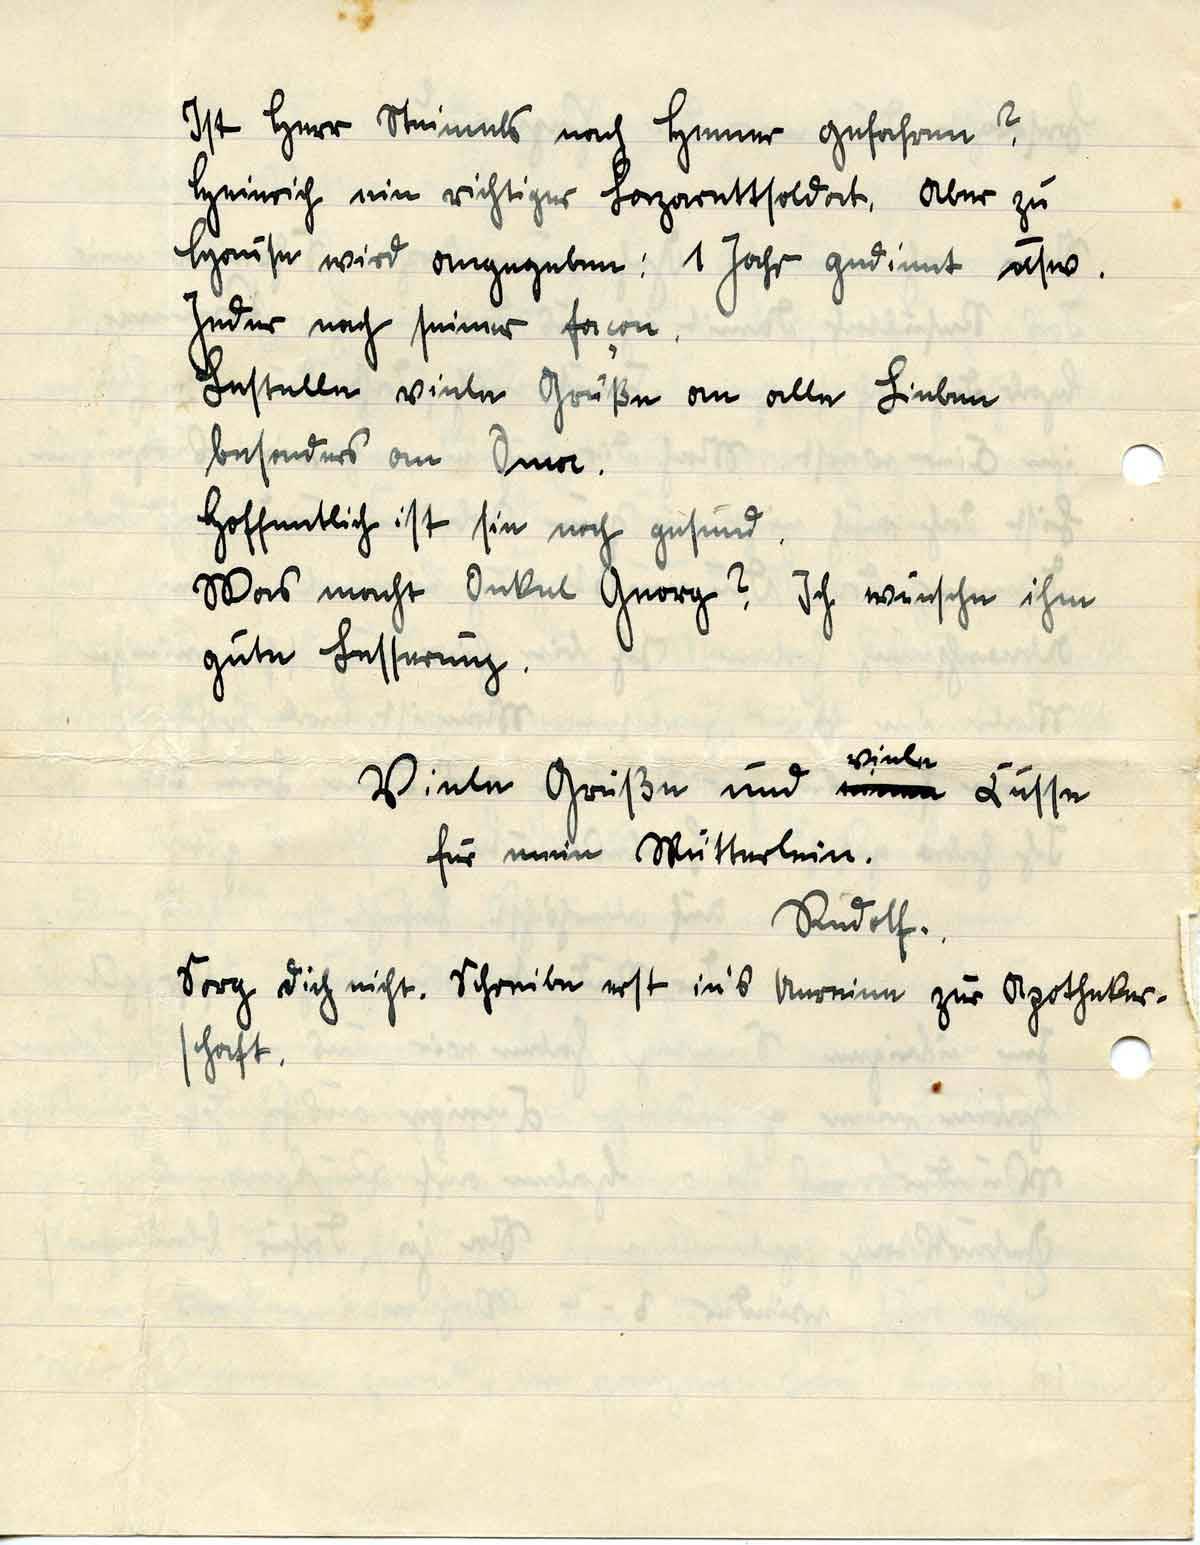 Ist Herr Steimels nach Hemer gefahren?
Heinrich ein richtiger Lazarettsoldat. Aber zu
Hause wird angegeben: 1 Jahr gedient usw.
Jeder nach seiner façon.
Bestelle viele Grüße an alle Lieben
besonders an Oma.
Hoffentlich ist sie noch gesund.
Was macht Onkel Georg? Ich wünsche ihm
gute Besserung.
viele
Viele Grüße und Küsse
für mein Mütterlein.
Rudolf.
Sorg Dich nicht. Schreibe erst in's zur Apotheker-
schaft.